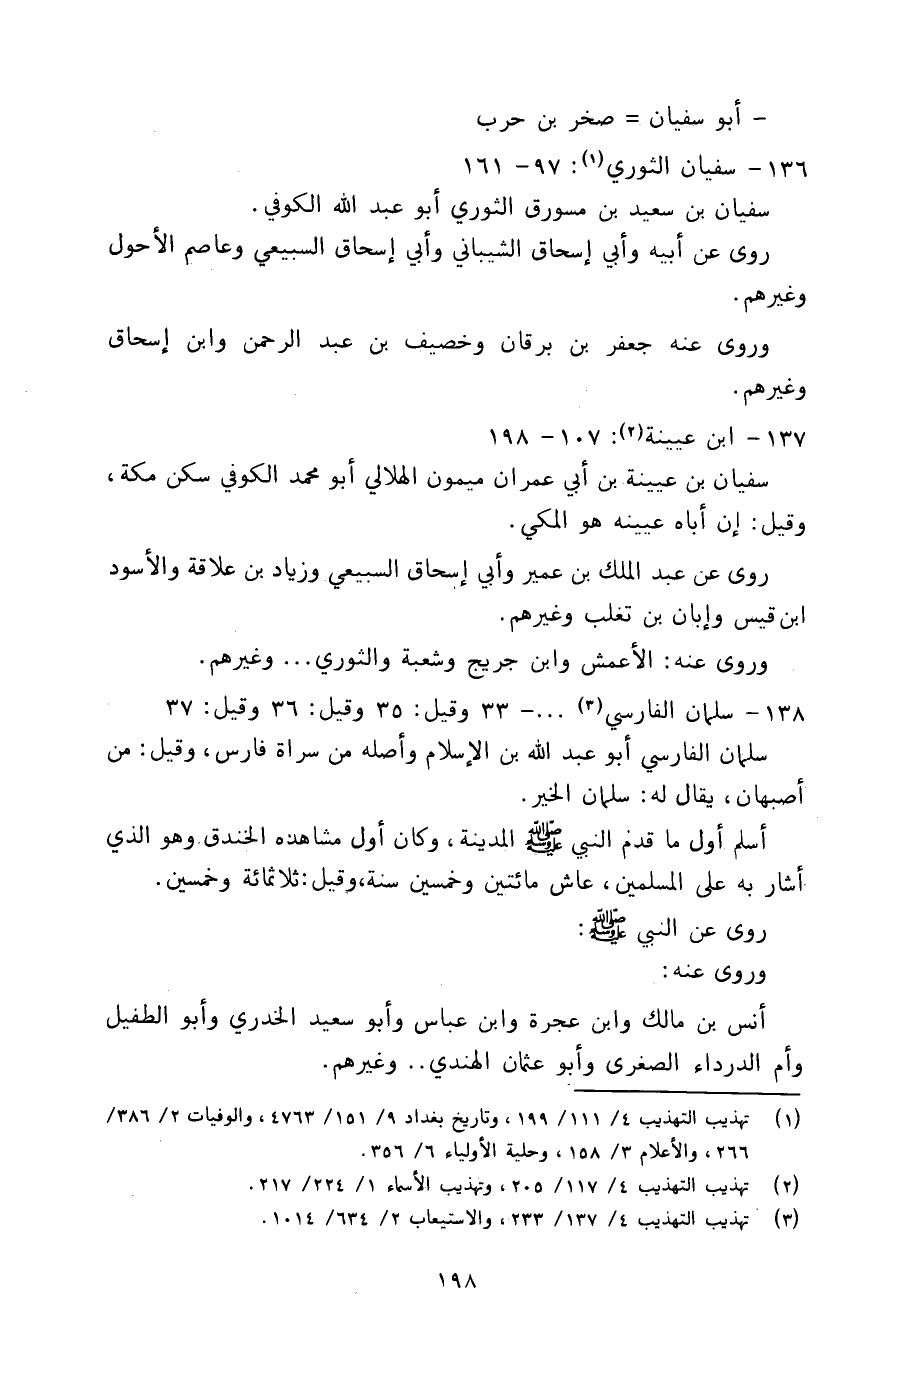 - أبو سفيان = صخر بن حرب
١٣٦ - سفيان الثوري(١): ٩٧ - ١٦١
سفيان بن سعيد بن مسورق الثوري أبو عبد الله الكوفي.
روى عن أبيه وأبي إسحاق الشيباني وأبي إسحاق السبيعي وعاصم الأحول
وغيرهم.
وروى عنه جعفر بن برقان وخصيف بن عبد الرحمن وابن إسحاق
وغيرهم.
١٣٧ - ابن عيينة(٢): ١٠٧ - ١٩٨
سفيان بن عيينة بن أبي عمران ميمون الهلالي أبو محمد الكوفي سكن مكة،
وقيل: إن أباه عيينه هو المكي.
روى عن عبد الملك بن عمير وأبي إسحاق السبيعي وزياد بن علاقة والأسود
ابن قيس وإبان بن تغلب وغيرهم.
وروى عنه: الأعمش وابن جريج وشعبة والثوري... وغيرهم.
١٣٨ - سلمان الفارسي(٣) ...- ٣٣ وقيل: ٣٥ وقيل: ٣٦ وقيل: ٣٧
سلمان الفارسي أبو عبد الله بن الإسلام وأصله من سراة فارس، وقيل: من
أصبهان، يقال له: سلمان الخير.
أسلم أول ما قدم النبي ﷺ المدينة، وكان أول مشاهده الخندق وهو الذي
أشار به على المسلمين، عاش مائتين وخمسين سنة، وقيل: ثلاثمائة وخمسين.
روى عن النبي ﷺ:
وروى عنه:
أنس بن مالك وابن عجرة وابن عباس وأبو سعيد الخدري وأبو الطفيل
وأم الدرداء الصغرى وأبو عثمان الهندي.. وغيرهم.
(١) تهذيب التهذيب ٤/ ١١١/ ١٩٩، وتاريخ بغداد ٩/ ١٥١/ ٤٧٦٣، والوفيات ٢/ ٣٨٦/
٢٦٦، والأعلام ٣/ ١٥٨، وحلية الأولياء ٦/ ٣٥٦.
(٢) تهذيب التهذيب ٤/ ١١٧/ ٢٠٥، وتهذيب الأسماء ١/ ٢٢٤/ ٢١٧.
(٣) تهذيب التهذيب ٤/ ١٣٧/ ٢٣٣، والاستيعاب ٢/ ٦٣٤/ ١٠١٤.
١٩٨